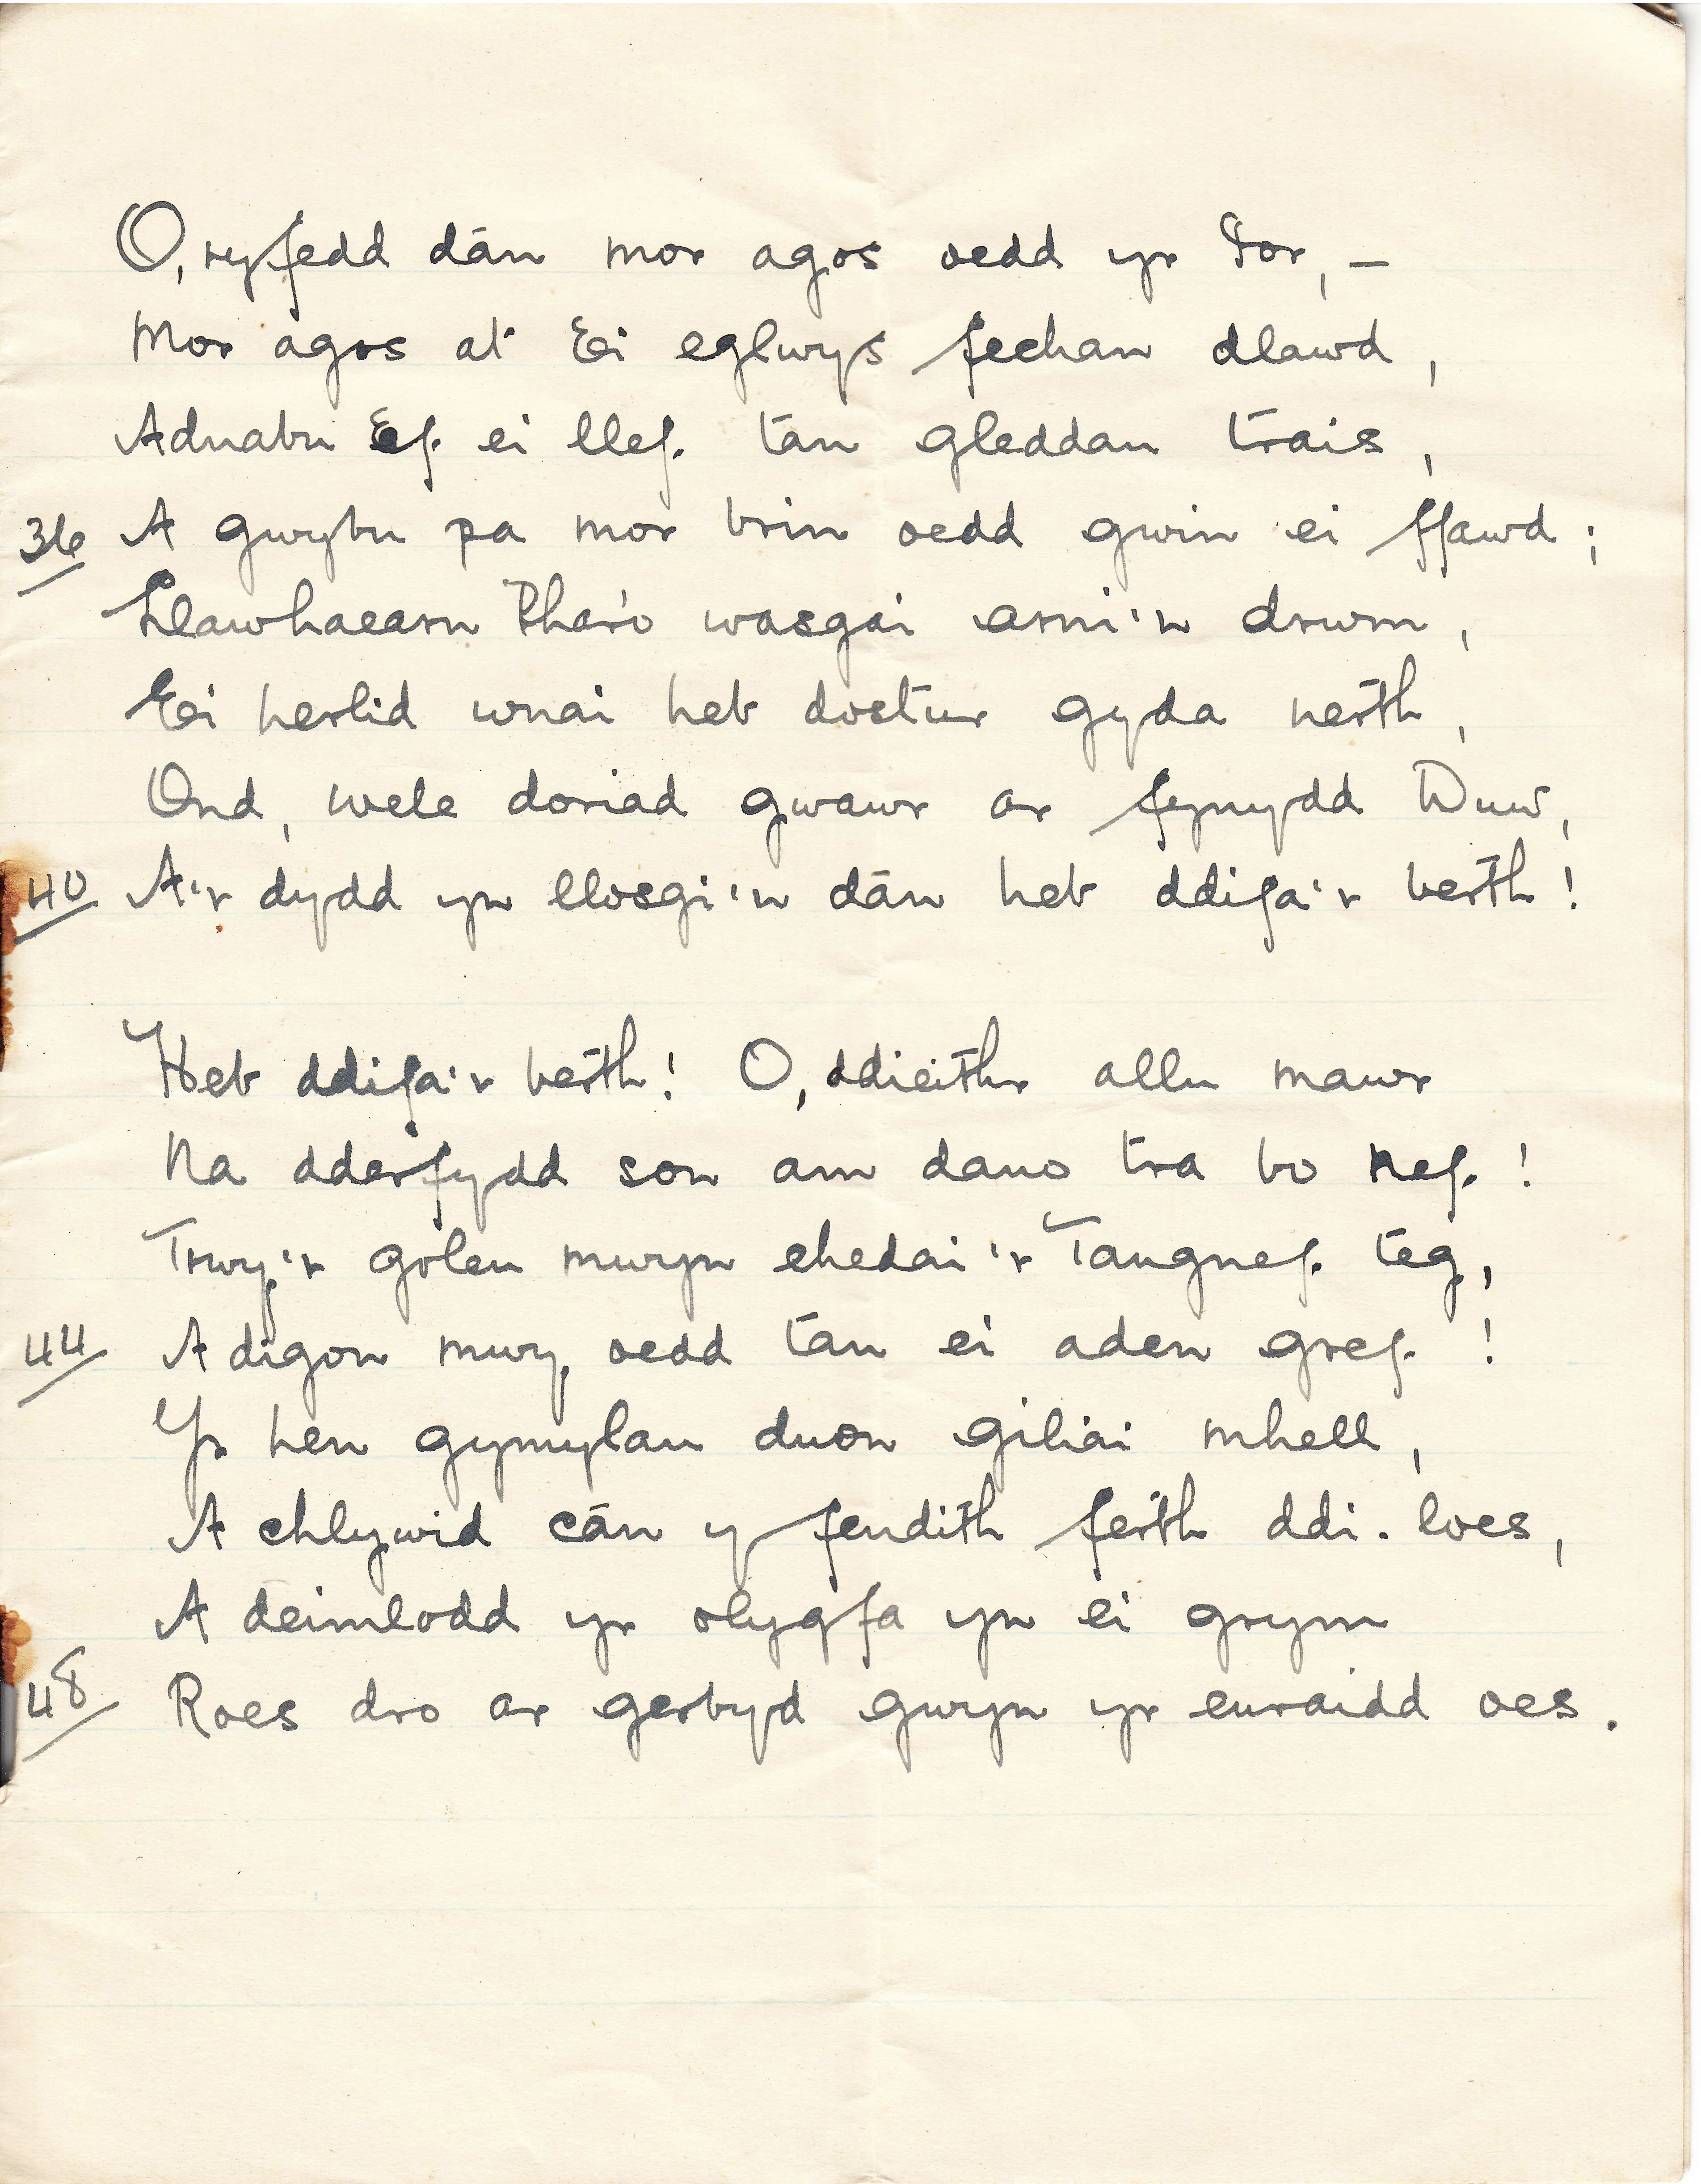 O, ryfedd dân mor agos oedd yr Ior, –
Mor agos at Ei eglwys fechan dlawd,
Adnabu Ef ei llef tan gleddau trais,
36 A gwybu pa mor brin oedd gwin ei ffawd;
Llawhaearn Pharo wasgai arni'n drwm,
Ei herlid wnai heb dostur gyda nerth,
Ond, wele doriad gwawr ar fynydd Duw,
40 A'r dydd yn llosgi'n dân heb ddifa'r berth!
Heb ddifa'r berth! O, ddieithr allu mawr
Na dderfydd son am dano tra bo nef!
Trwy'r goleu mwyn ehedai'r Tangnef teg,
44 A digon mwy oedd tan ei aden gref!
Yr hen gymylau duon giliai mhell,
A chlywid cân y fendith ferth ddi-loes,
A deimlodd yr olygfa yn ei grym
48 Roes dro ar gerbyd gwyn yr euraidd oes.